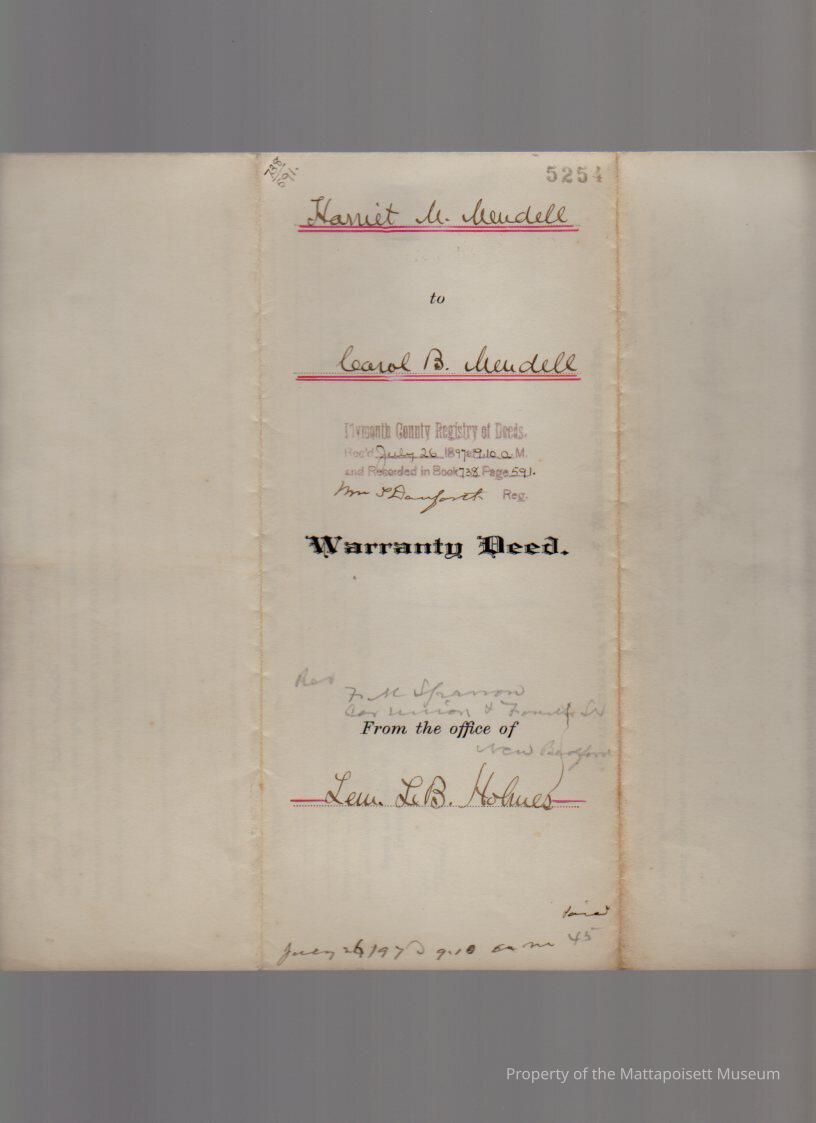 738/591.
5254
Harriet M. Mendell
to
Carol B. Mendell
Plymouth County Registry of Deeds.
Rec'd July 26 1897 9.10 a M.
and Recorded in Book 738 Page 591.
Wm S Danforth Reg.
Warranty Deed.
F. M Sparrow
Cor Union & Fourth St
From the office of
New Bedford
Lem. LeB. Holmes
Paid
July 26/97 9.10 a m 45
Property of the Mattapoisett Museum